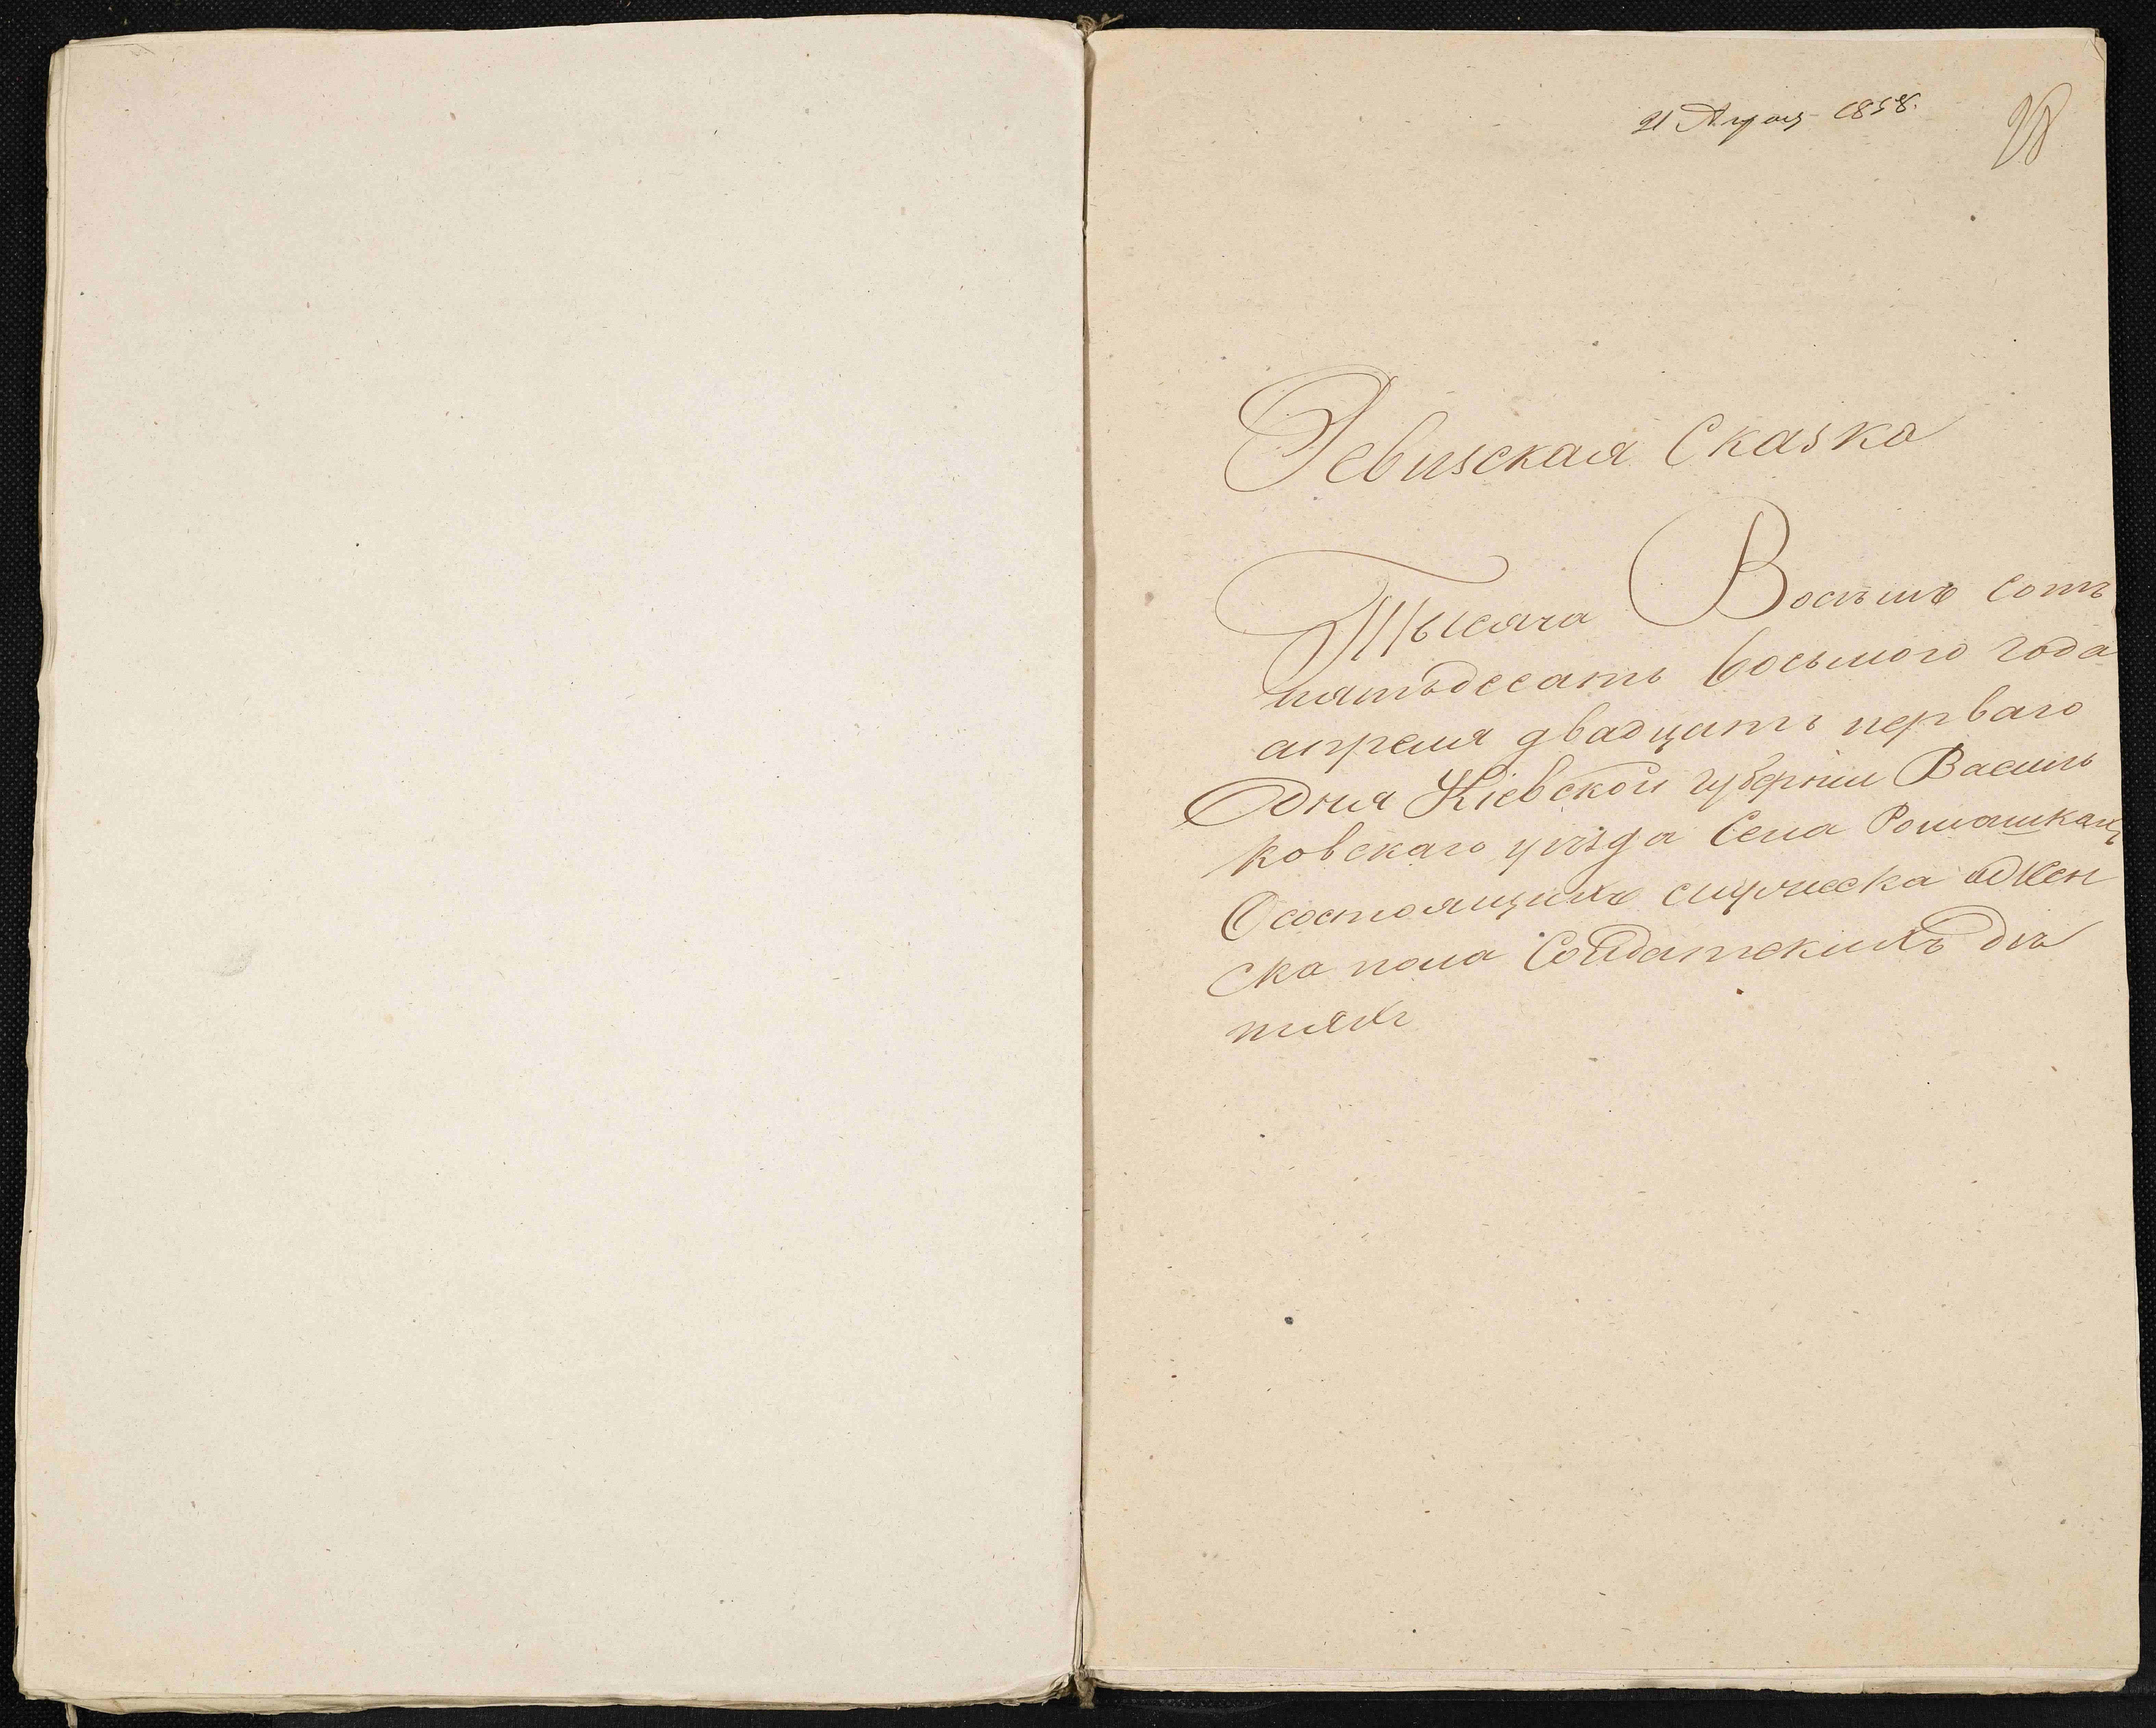 21 Апрѣл 1858.
28
Ревизская Сказка
Тысяча Восѣмъ сотъ
пятьдесатъ восьмого года
апреля двадцать перваго
Дня Кіевской губерніи Василь
ковскаго уѣзда Села Ромашкахъ
О состоящихъ мужеска и жен
ска пола Солдатскихъ дѣ
тяхъ